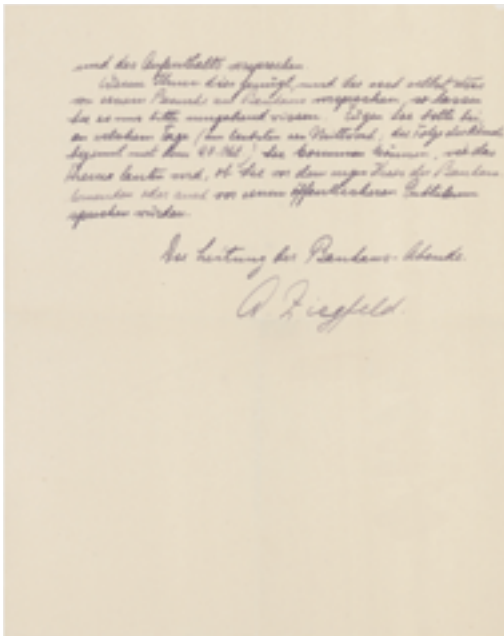 und des Aufenthalts versprechen.
Wenn Ihnen dies genügt, und Sie
von einem Besuch am Bauhaus versprechen, so lassen
Sie es uns bitte umgehend wissen. Sagen Sie bitte
an welchem Tage (am liebsten am Mittwoch, die Folge der Abende
beginnt mit dem Okt.) Sie kommen können, wie das
Thema lauten wird, ob Sie vor dem engen Kreis des Bauhaus
oder auch vor einem öffentlicheren Publikum
sprechen würden.
Die Leitung der Bauhaus-Abende.
A. Ziegfeld.